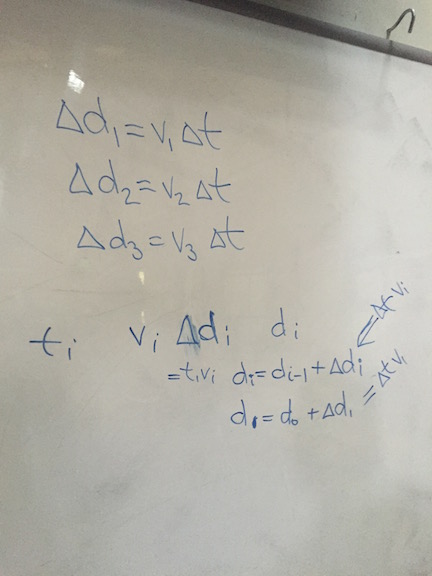 Δd₁=v₁Δt
Δd₂=v₂Δt
Δd₃=v₃Δt
tᵢ vᵢ Δdᵢ dᵢ
=tᵢvᵢ dᵢ=dᵢ₋₁+Δdᵢ ⇐ Δtvᵢ
d₁=d₀+Δd₁ =Δtv₁